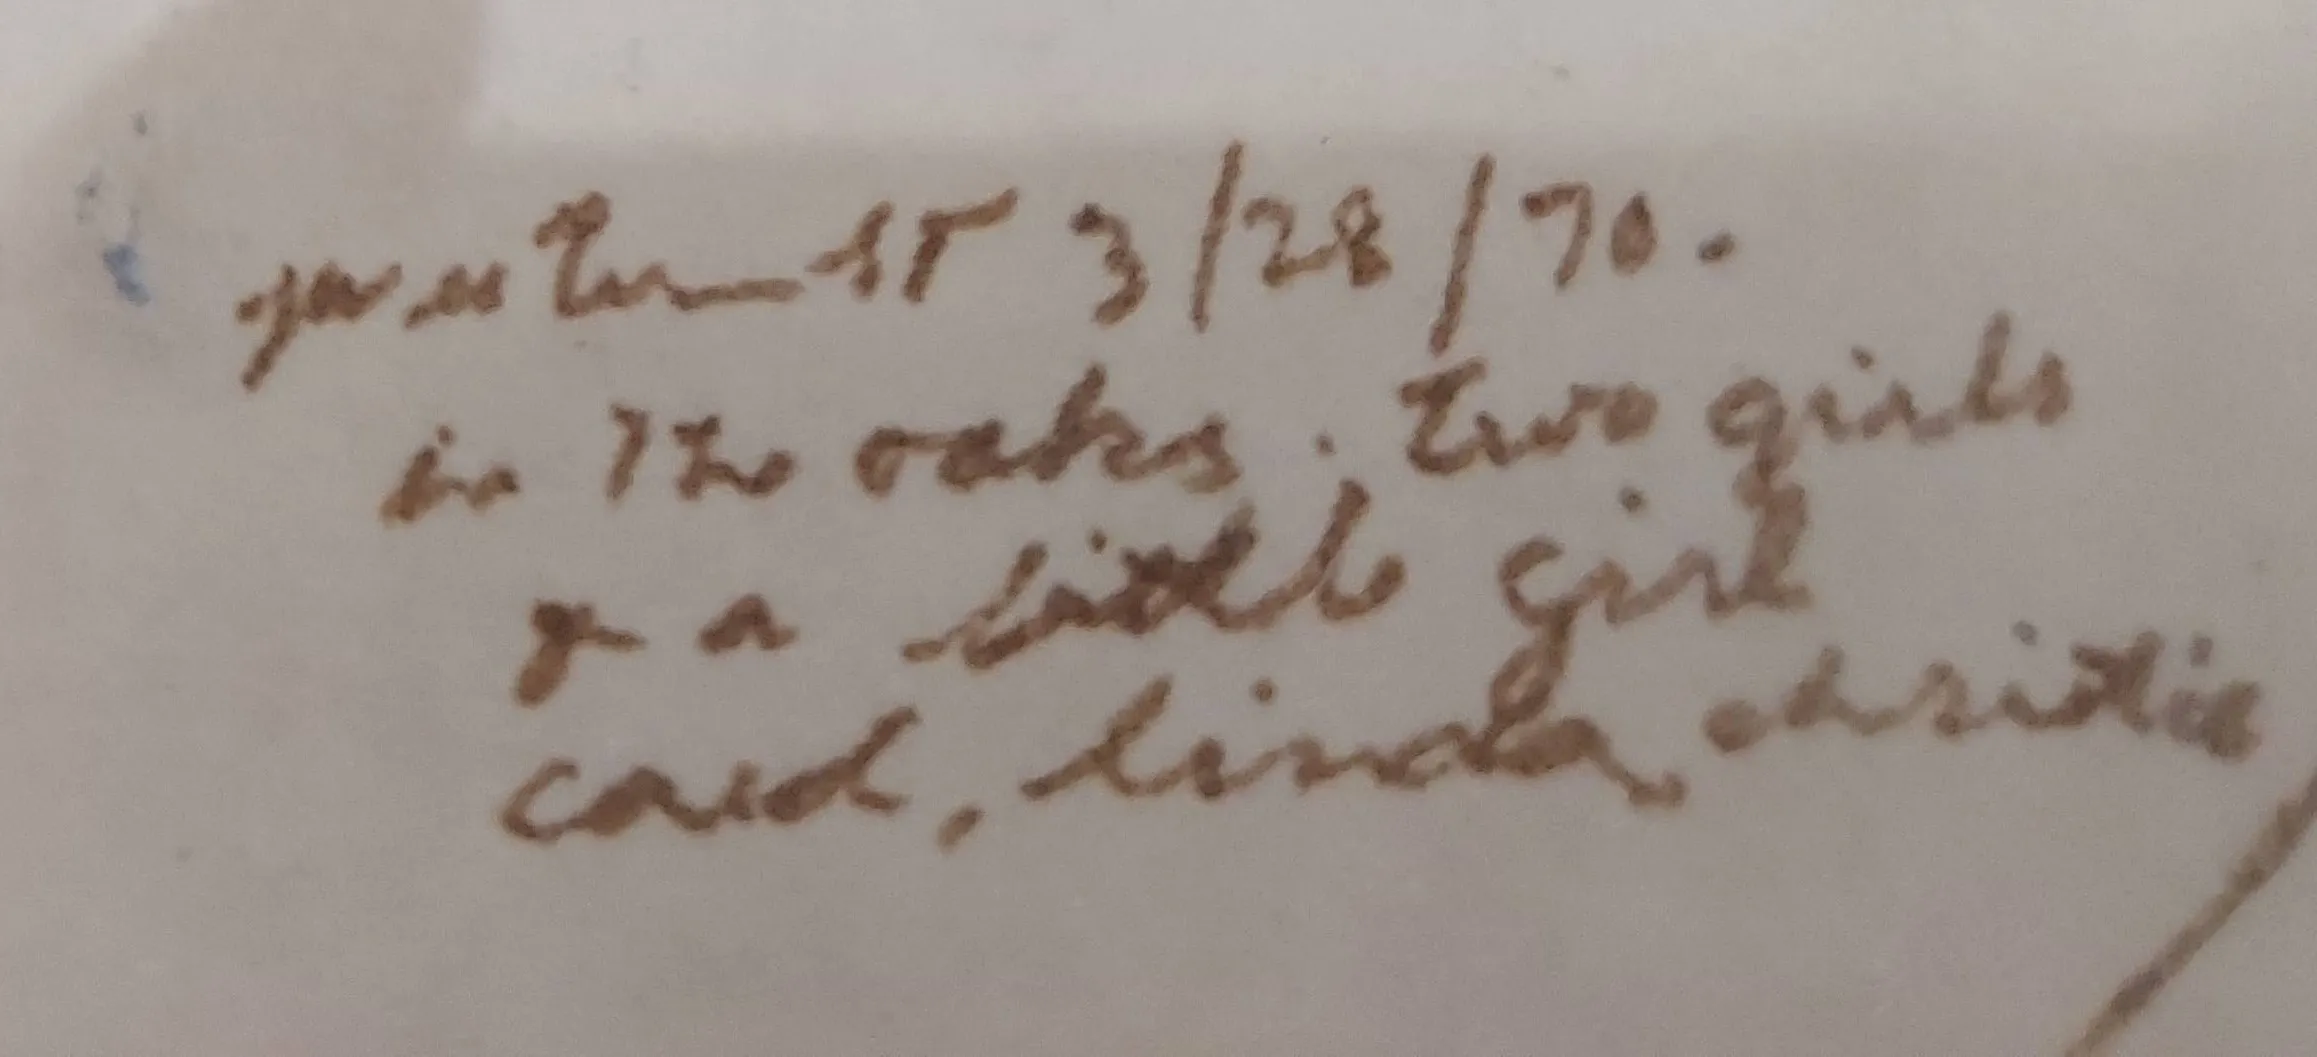 3/28/70.
in the oaks. two girls
& a little girl
carol, linda, christie